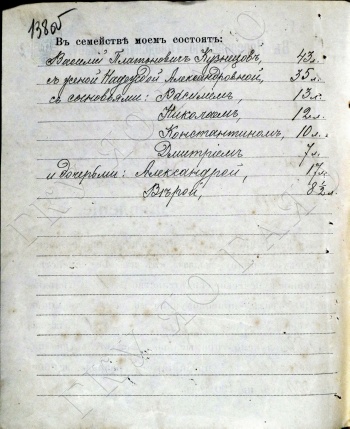 138об
Въ семействѣ моемъ состоятъ:
Василій Платоновичъ Кузнецовъ, 43 л.
съ женой Надеждой Александровной, 35 л.
съ сыновьями: Василіемъ, 13 л.
Николаемъ, 12 л.
Константиномъ, 10 л.
Дмитріемъ 7 л.
и дочерьми: Александрой, 17 л.
Вѣрой, 8½ л.
ГКУ ЯО ГАЯО